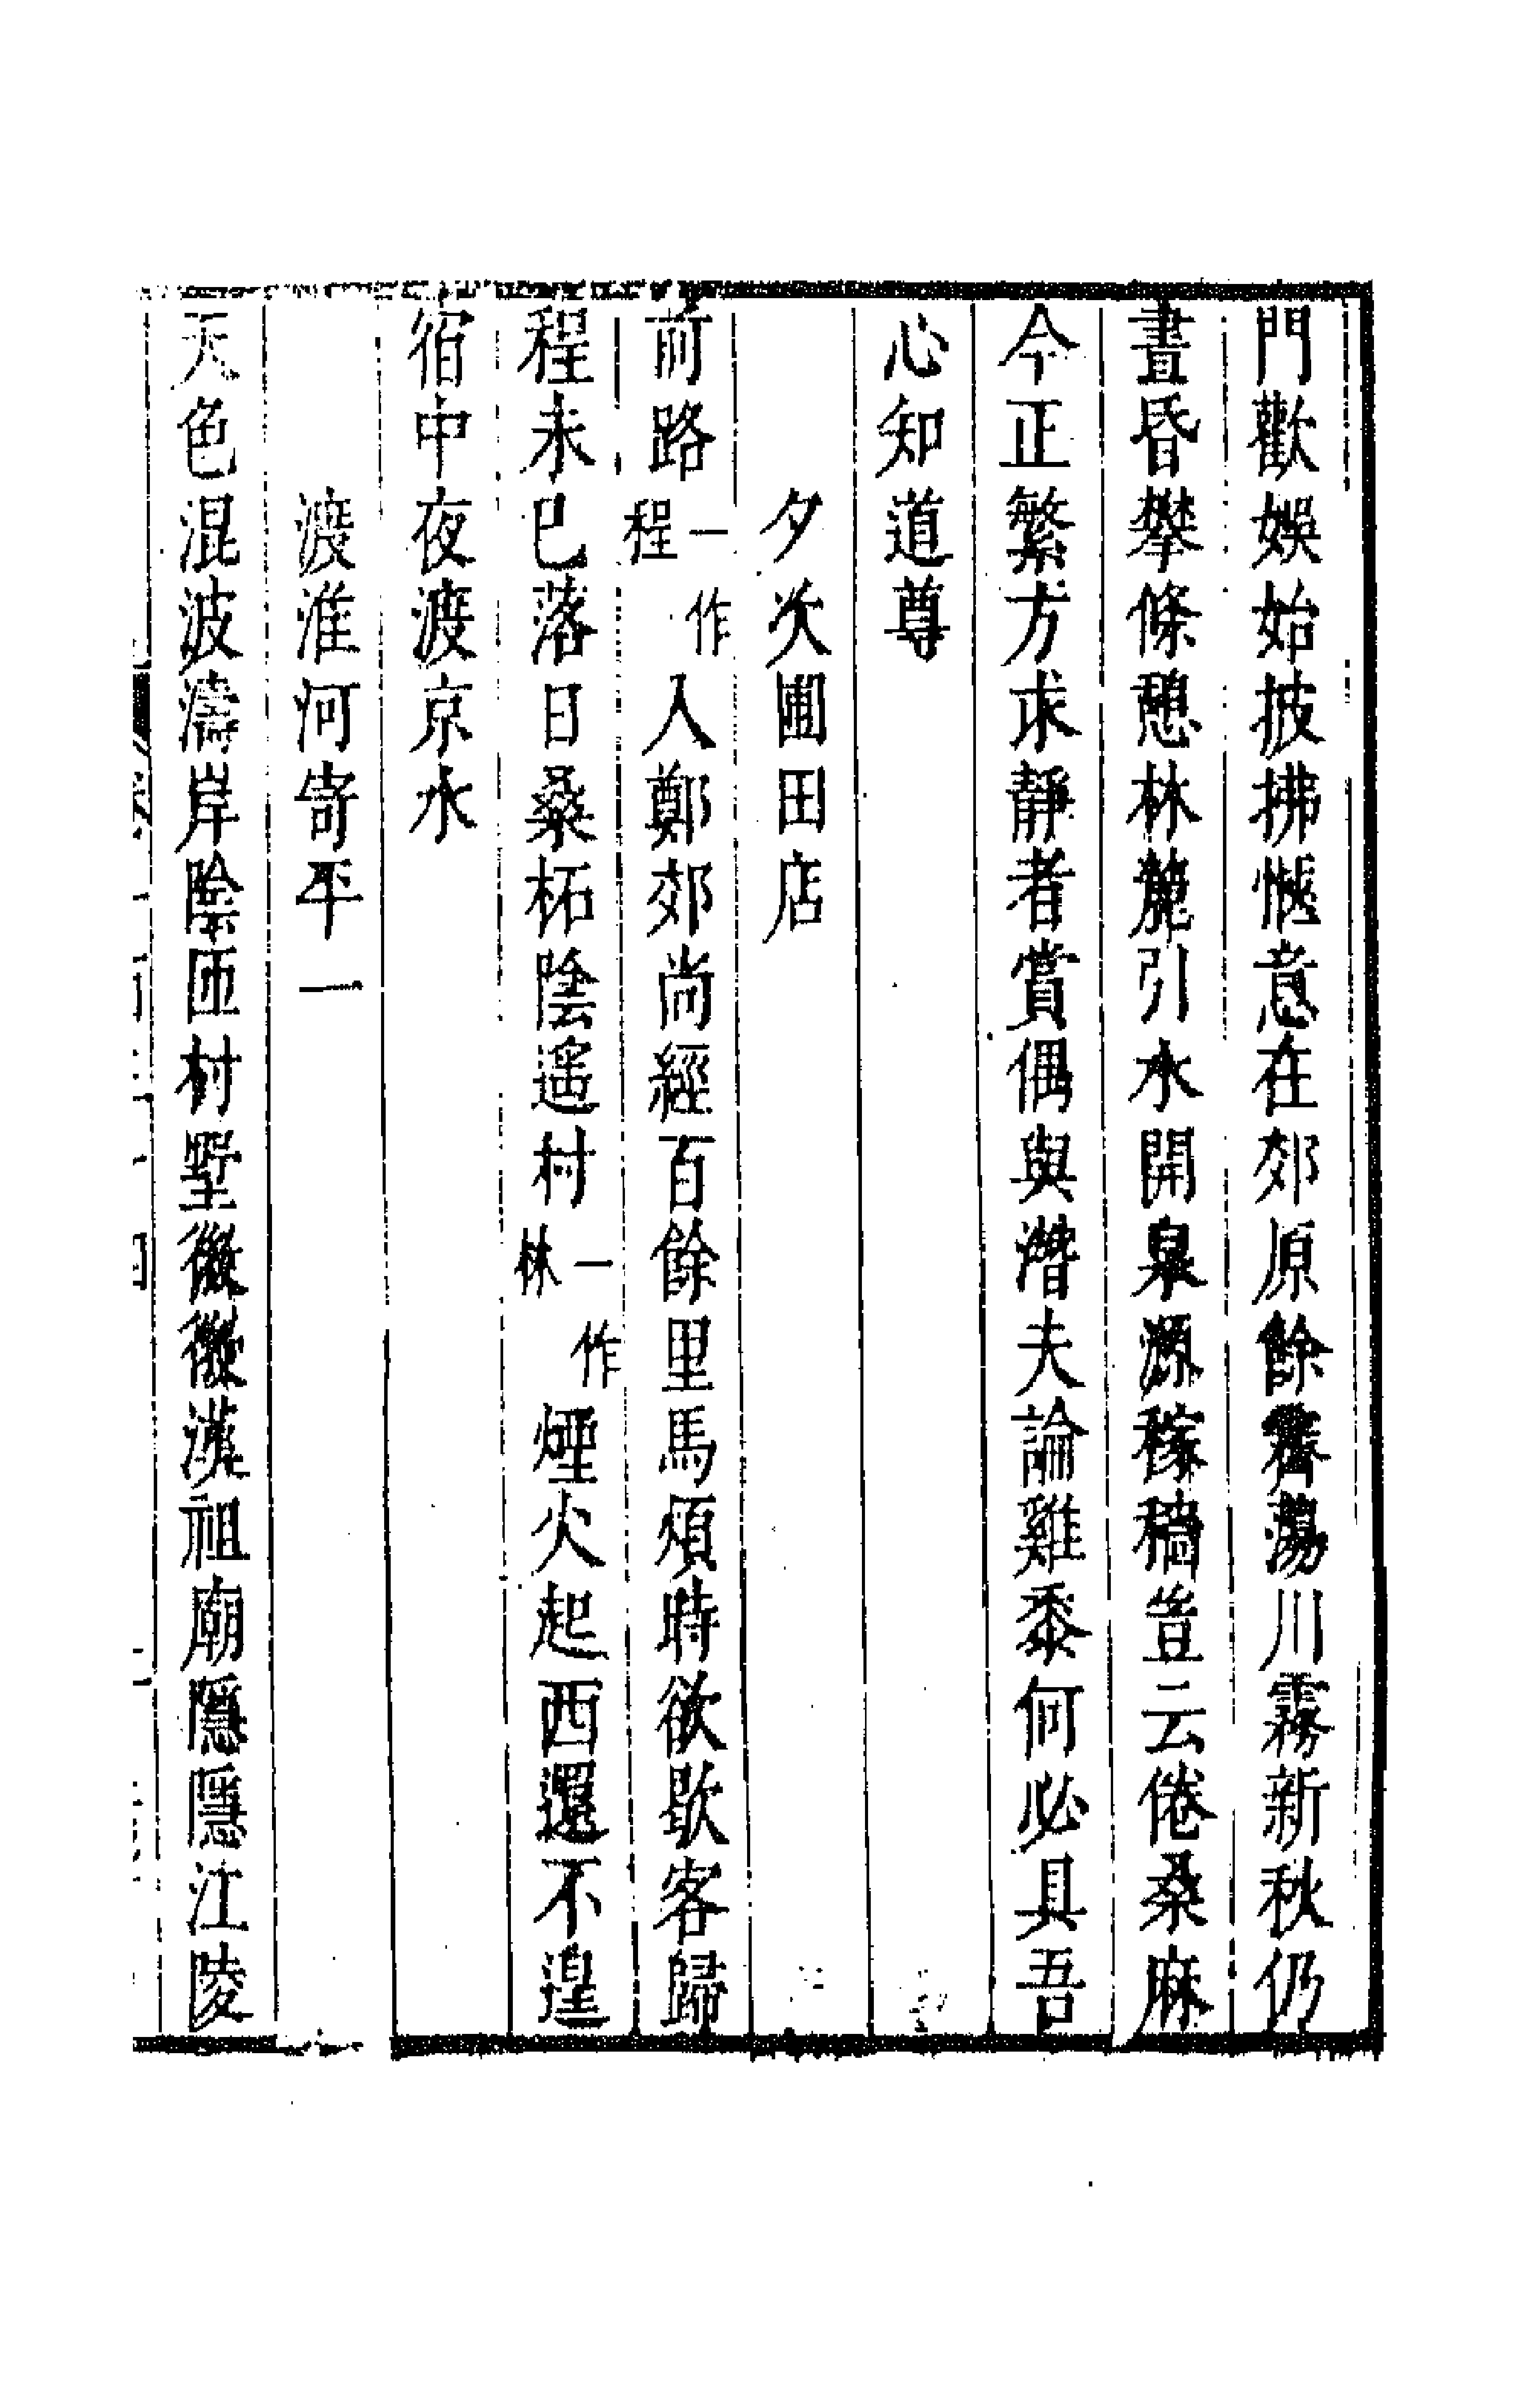 門歡娛始披拂愜意在郊原餘霽蕩川霧新秋仍
晝昏攀條憩林麓引水開泉源稼穡豈云倦桑麻
今正繁方求靜者賞偶與潛夫論雞黍何必具吾
心知道尊
夕次圃田店
前路一作程入鄭郊尚經百餘里馬煩時欲歇客歸
程未已落日桑柘陰遥村一作林煙火起西還不遑
宿中夜渡京水
渡淮河寄平一
天色混波濤岸陰匝村墅微微漢祖廟隱隱江陵